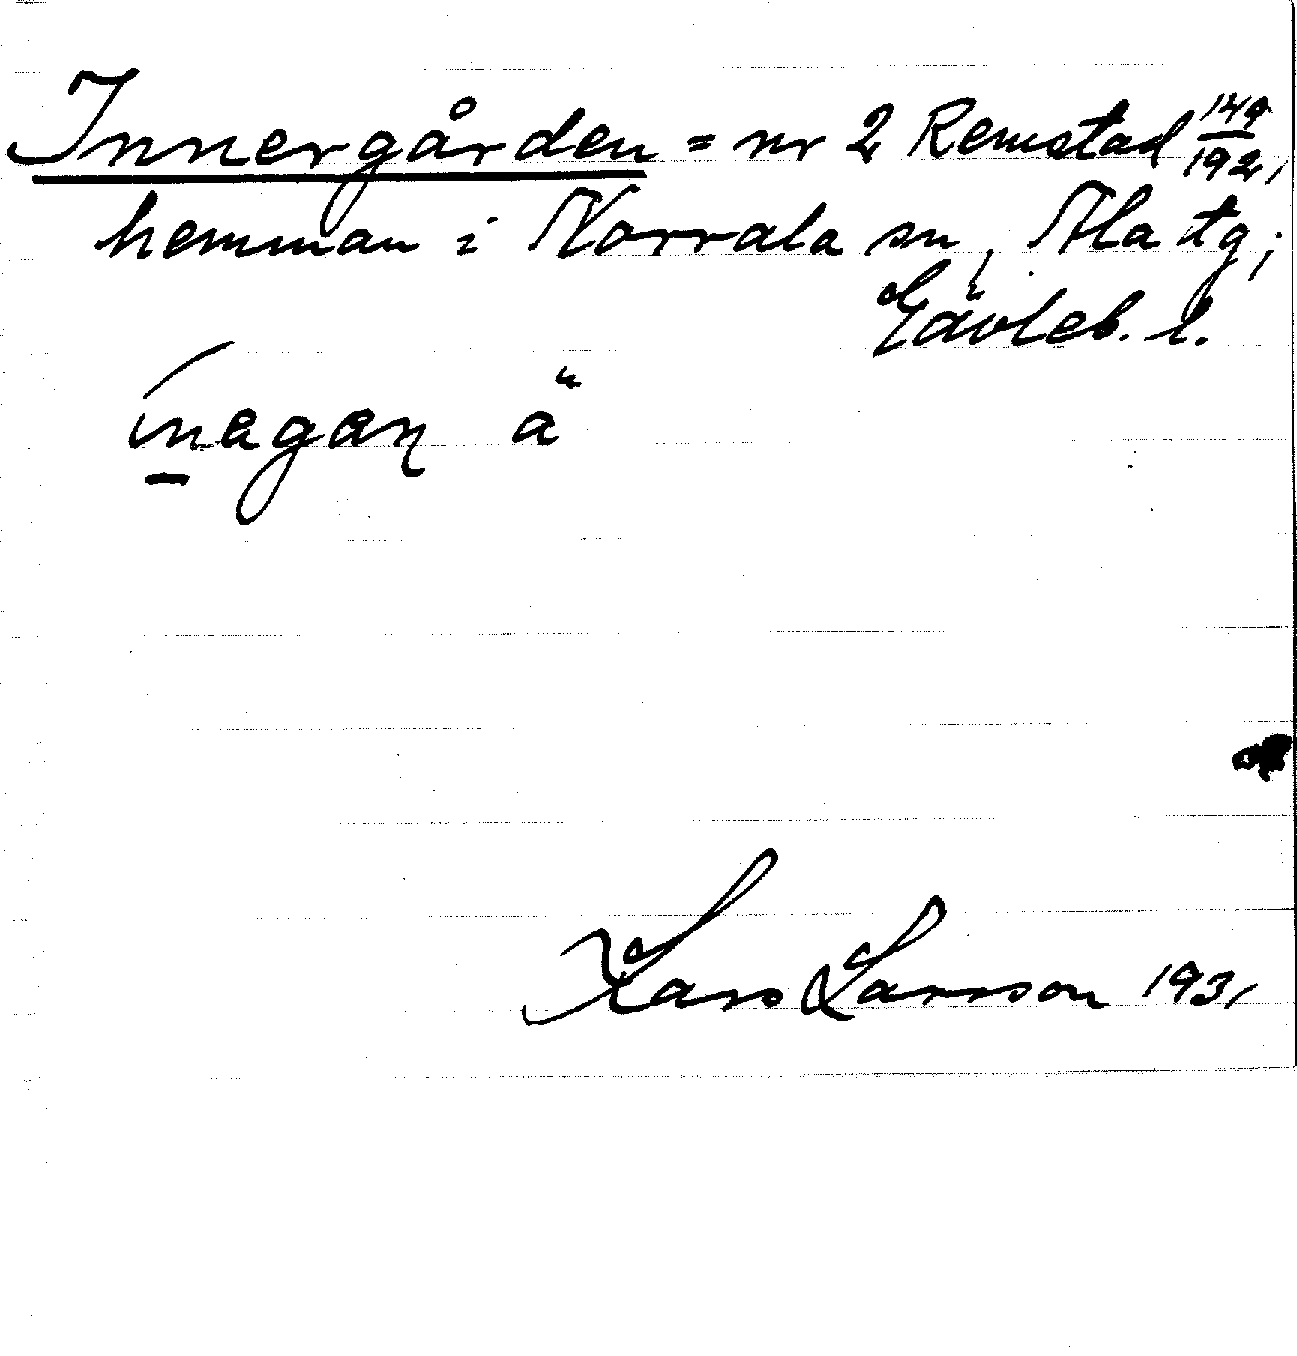 Innergården = nr 2 Remstad 149/192,
hemman i Norrala sn, Ala tg;
Gävleb. l.
ínagaɳ ä
Lars Larsson 1931